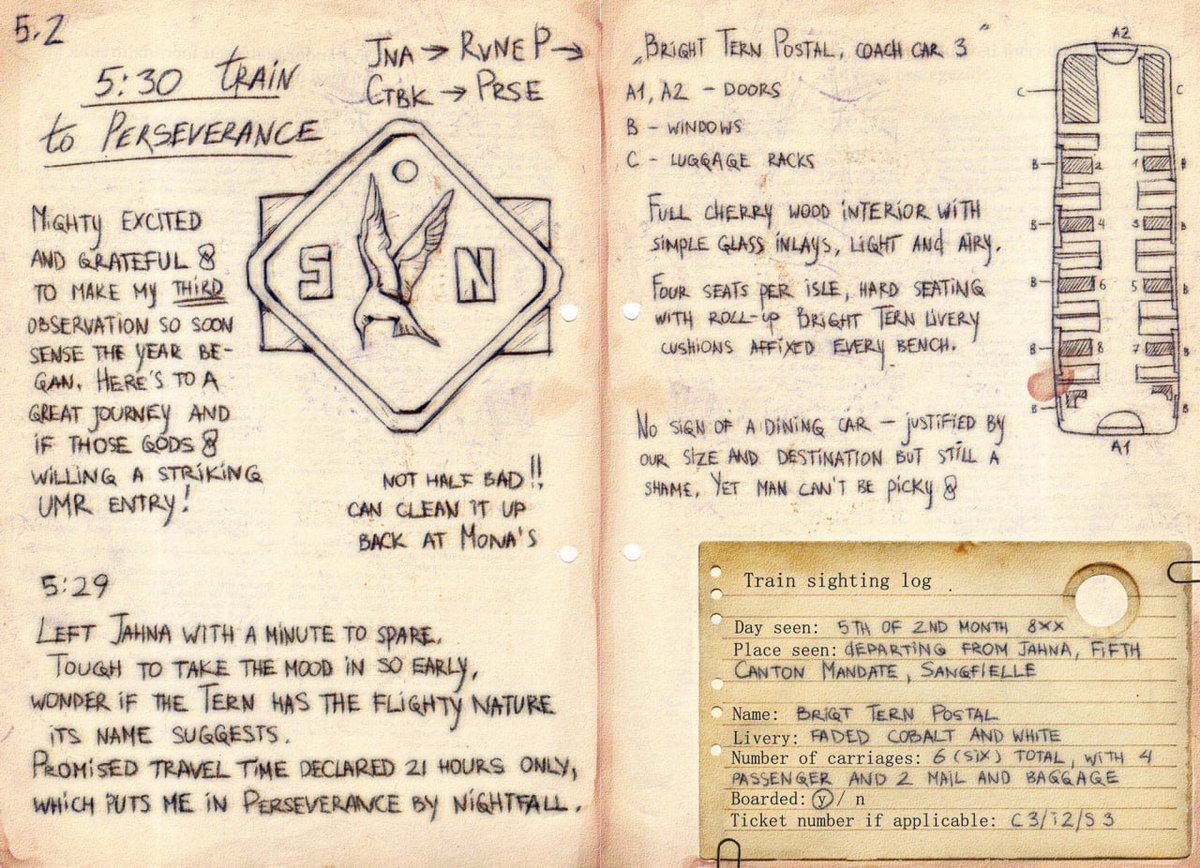 5.2
5:30 TRAIN
to PERSEVERANCE
JNA → RVNEP →
CTBK → PRSE
S N
MIGHTY EXCITED
AND GRATEFUL
TO MAKE MY THIRD
OBSERVATION SO SOON
SENSE THE YEAR BE-
GAN. HERE'S TO A
GREAT JOURNEY AND
IF THOSE GODS
WILLING A STRIKING
UMR ENTRY!
NOT HALF BAD!!
CAN CLEAN IT UP
BACK AT MONA'S
5:29
LEFT JAHNA WITH A MINUTE TO SPARE.
TOUGH TO TAKE THE MOOD IN SO EARLY,
WONDER IF THE TERN HAS THE FLIGHTY NATURE
ITS NAME SUGGESTS.
PROMISED TRAVEL TIME DECLARED 21 HOURS ONLY,
WHICH PUTS ME IN PERSEVERANCE BY NIGHTFALL.
„BRIGHT TERN POSTAL, COACH CAR 3"
A1, A2 – DOORS
B – WINDOWS
C – LUGGAGE RACKS
FULL CHERRY WOOD INTERIOR WITH
SIMPLE GLASS INLAYS, LIGHT AND AIRY.
FOUR SEATS PER ISLE, HARD SEATING
WITH ROLL-UP BRIGHT TERN LIVERY
CUSHIONS AFFIXED EVERY BENCH.
NO SIGN OF A DINING CAR – JUSTIFIED BY
OUR SIZE AND DESTINATION BUT STILL A
SHAME. YET MAN CAN'T BE PICKY
A2
C C
B 2 1 B
B 4 3 B
B 6 5 B
B 8 7 B
B B
A1
Train sighting log
Day seen: 5TH OF 2ND MONTH 8XX
Place seen: DEPARTING FROM JAHNA, FIFTH
CANTON MANDATE, SANGFIELLE
Name: BRIGT TERN POSTAL
Livery: FADED COBALT AND WHITE
Number of carriages: 6 (SIX) TOTAL, WITH 4
PASSENGER AND 2 MAIL AND BAGGAGE
Boarded: y / n
Ticket number if applicable: C3/12/S3